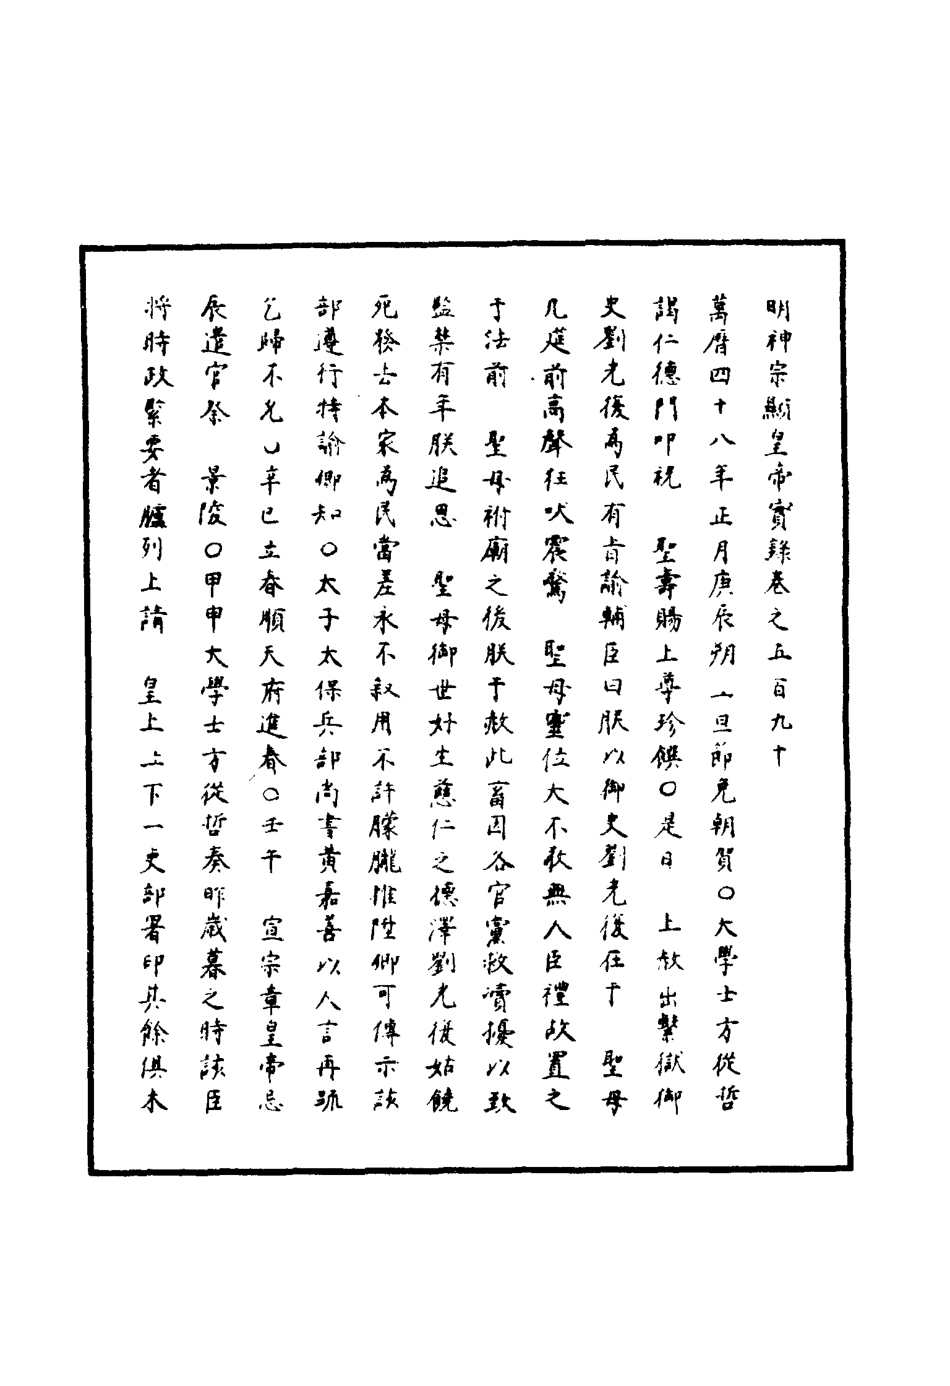 明神宗顯皇帝實錄卷之五百九十
萬曆四十八年正月庚辰朔上旦節免朝賀〇大學士方從哲
詣仁德門叩祝　聖壽賜上尊珍饌〇是日　上赦出繫獄御
史劉光復為民有旨諭輔臣曰朕以御史劉光復在于　聖母
几筵前高聲狂吠震驚　聖母靈位大不敬無人臣禮故置之
于法前　聖母祔廟之後朕于赦此畜因各官黨救瀆擾以致
監禁有年朕追思　聖母御世好生慈仁之德澤劉光復姑饒
死發去本家為民當差永不叙用不許朦朧推陞卿可傳示該
部遵行特諭卿知〇太子太保兵部尚書黃嘉善以人言再疏
乞歸不允〇辛巳立春順天府進春〇壬午　宣宗章皇帝忌
辰遣官祭　景陵〇甲申大學士方從哲奏昨歲暮之時該臣
將時政緊要者臚列上請　皇上上下一吏部署印其餘俱未